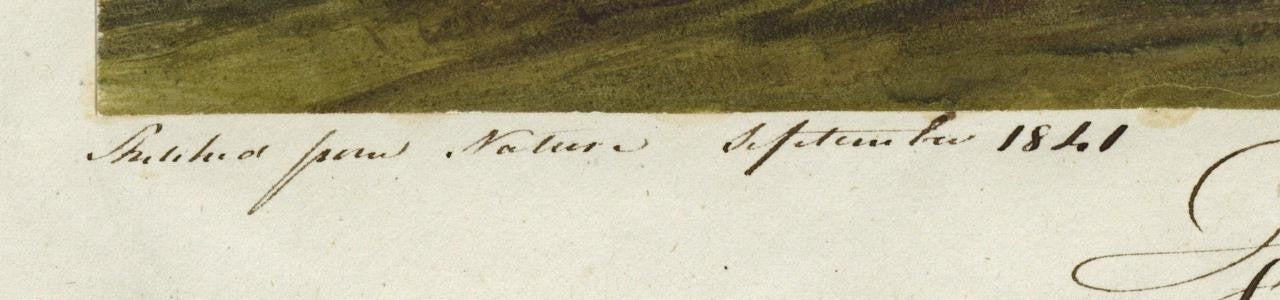 Sketched from Nature September 1841